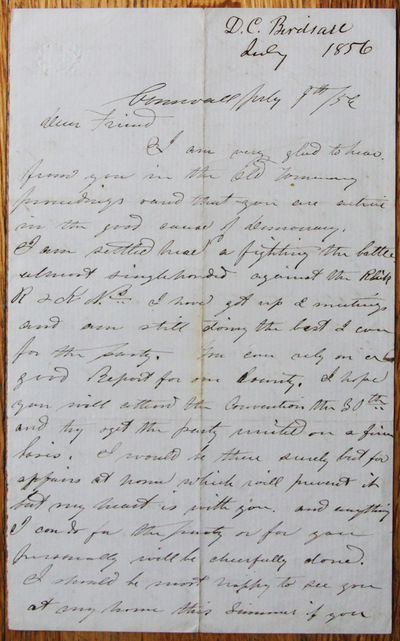 D. C. Birdsall
July 1856
Cornwall July 9th/56
dear Friend
I am very glad to hear
from you in the old Tammany
proceedings and that you are active
in the good cause of democracy.
I am settled here a fighting the battle
almost singlehanded against the Black
R & K Ns. I have got up 2 meetings
and am still doing the best I can
for the party. You can rely on a
good Report for our County. I hope
you will attend the Convention the 30th
and try & get the party united on a firm
basis. I would be there surely but for
affairs at home which will prevent it
but my heart is with you. and anything
I can do for the party or for you
Personally will be cheerfully done.
I should be most happy to see you
at my home this Summer if you